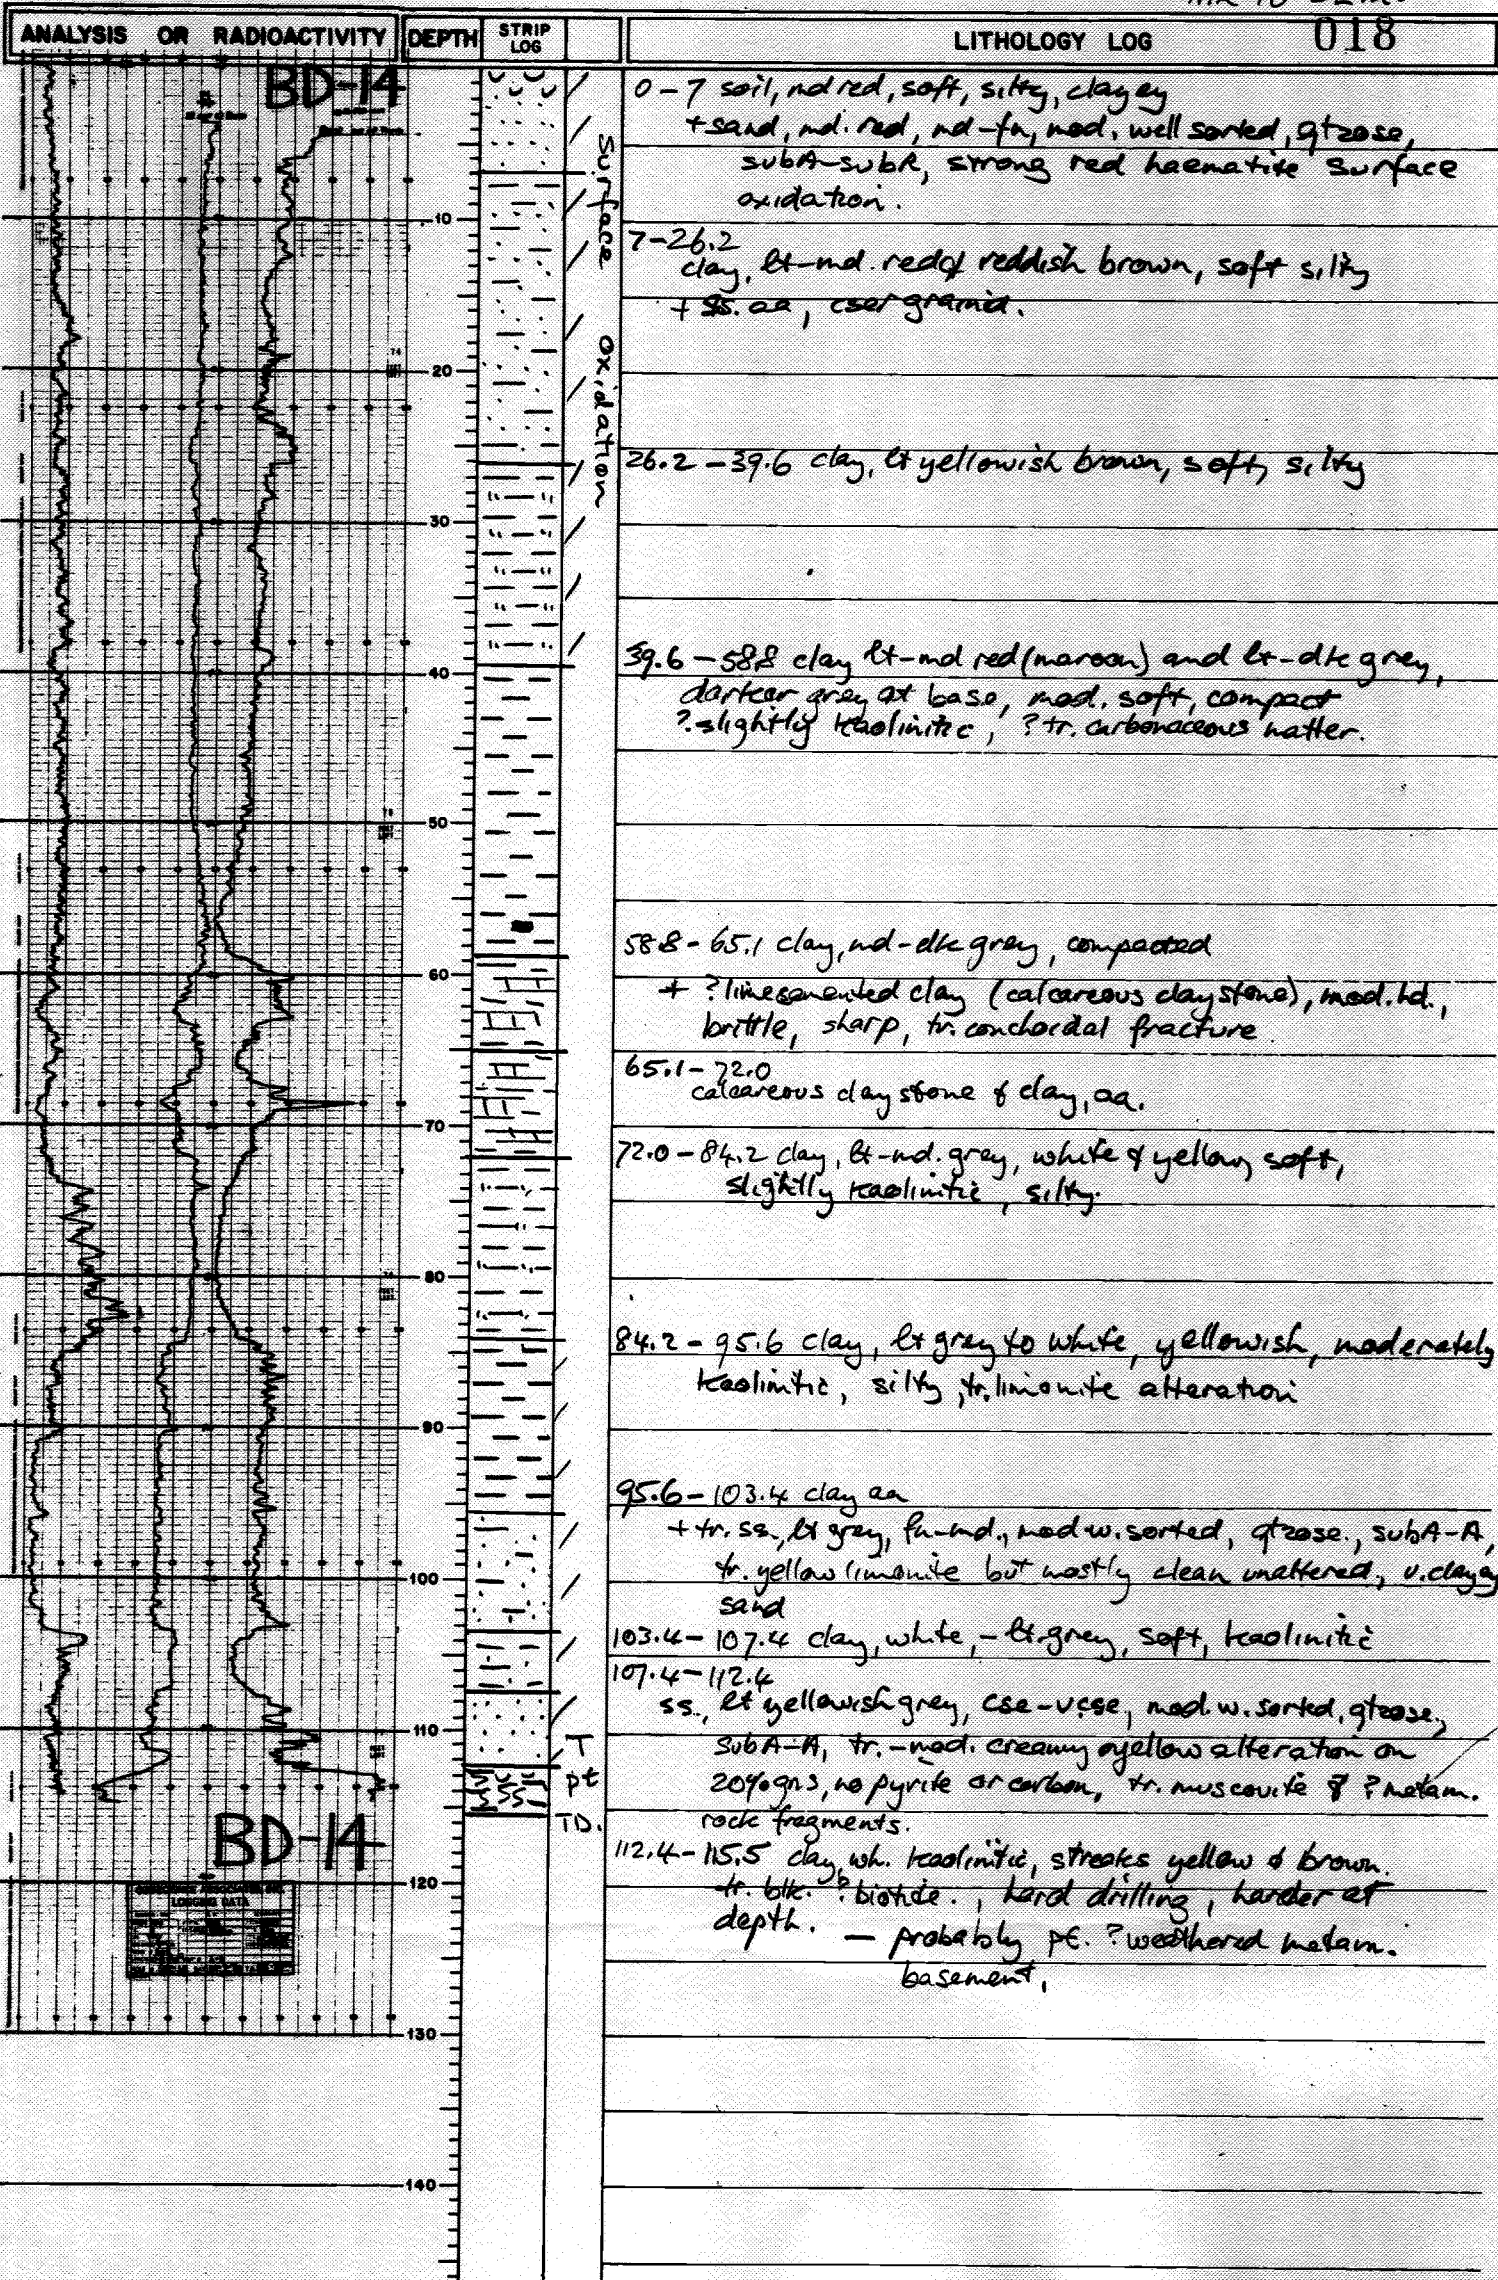 018
ANALYSIS OR RADIOACTIVITY
DEPTH
STRIP LOG
LITHOLOGY LOG
BD-14
Surface oxidation
0-7 soil, md red, soft, silty, clayey
+ sand, md. red, md-fn, mod. well sorted, qtzose,
subA-subR, strong red haematite surface
oxidation.
10
7-26.2
clay, lt-md. red & reddish brown, soft silty
+ ss. aa, cser grained.
20
26.2-39.6 clay, lt yellowish brown, soft, silty
30
39.6-58.8 clay lt-md red (maroon) and lt-dk grey,
40
darker grey at base, mod. soft, compact
? slightly kaolinitic, ? tr. carbonaceous matter.
50
58.8-65.1 clay, md-dk grey, compacted
60
+ ? lime cemented clay (calcareous claystone), mod. hd.,
brittle, sharp, tr. conchoidal fracture
65.1-72.0
calcareous claystone & clay, aa.
70
72.0-84.2 clay, lt-md. grey, white & yellow, soft,
slightly kaolinitic, silty.
80
84.2-95.6 clay, lt grey to white, yellowish, moderately
kaolinitic, silty, tr. limonite alteration
90
95.6-103.4 clay aa
+ tr. ss., lt grey, fn-md., mod w. sorted, qtzose., subA-A,
tr. yellow limonite but mostly clean unaltered, v. clayey
sand
100
103.4-107.4 clay, white,-lt. grey, soft, kaolinitic
107.4-112.4
ss., lt yellowish grey, cse-vcse, mod. w. sorted, qtzose.,
110
subA-A, tr.-mod. creamy yellow alteration on
20% gns, no pyrite or carbon, tr. muscovite & ? metam.
rock fragments.
T
p€
TD.
BD-14
112.4-115.5 clay, wh. kaolinitic, streaks yellow & brown.
tr. blk. ? biotite., hard drilling, harder at
depth. - probably p€. ? weathered metam.
basement.
120
LOGGING DATA
130
140